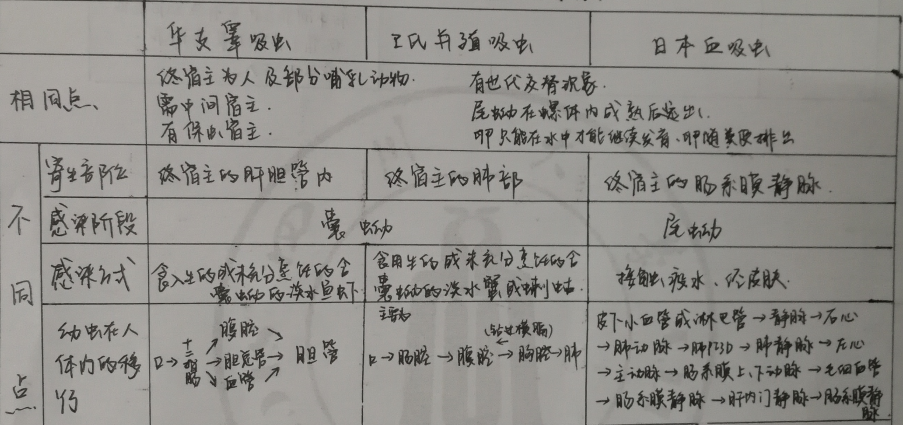 华支睾吸虫 卫氏并殖吸虫 日本血吸虫
相同点、
终宿主为人及部分哺乳动物. 有世代交替现象
需中间宿主. 尾蚴在螺体内成熟后逸出.
有保虫宿主. 卵只能在水中才能继续发育、卵随粪便排出
不同点
寄生阶段 终宿主的肝胆管内 终宿主的肺部 终宿主的肠系膜静脉.
感染阶段 囊蚴 尾蚴
感染方式 食入生的或未充分煮熟的含
囊蚴的淡水鱼虾
食用生的或未充分煮熟的含
囊蚴的淡水蟹或蝲蛄
接触疫水、经皮肤.
幼虫在人
体内的移
行
口→十二指肠→腹腔→
→胆总管→胆管
→血管→
主要为
(钻过横膈)
口→肠腔→腹腔→胸腔→肺
皮下小血管或淋巴管→静脉→右心
→肺动脉→肺→肺静脉→左心
→主动脉→肠系膜上、下动脉→毛细血管
→肠系膜静脉→肝内门静脉→肠系膜静
脉.